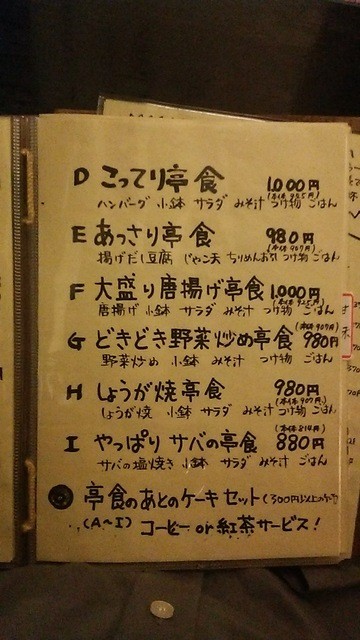 D こってり亭食 1,000円
(本体 925円)
ハンバーグ 小鉢 サラダ みそ汁 つけ物 ごはん
E あっさり亭食 980円
(本体 907円)
揚げだし豆腐 じゃこ天 ちりめんおろし つけ物 ごはん
F 大盛り唐揚げ亭食 1,000円
(本体 925円)
唐揚げ 小鉢 サラダ みそ汁 つけ物 ごはん
G どきどき野菜炒め亭食 980円
(本体 907円)
野菜炒め 小鉢 みそ汁 つけ物 ごはん
H しょうが焼亭食 980円
(本体 907円)
しょうが焼 小鉢 サラダ みそ汁 つけ物 ごはん
I やっぱり サバの亭食 880円
(本体 814円)
サバの塩焼き 小鉢 サラダ みそ汁 ごはん
亭食のあとのケーキセット(300円以上の
(A~I) コーヒー or 紅茶サービス!